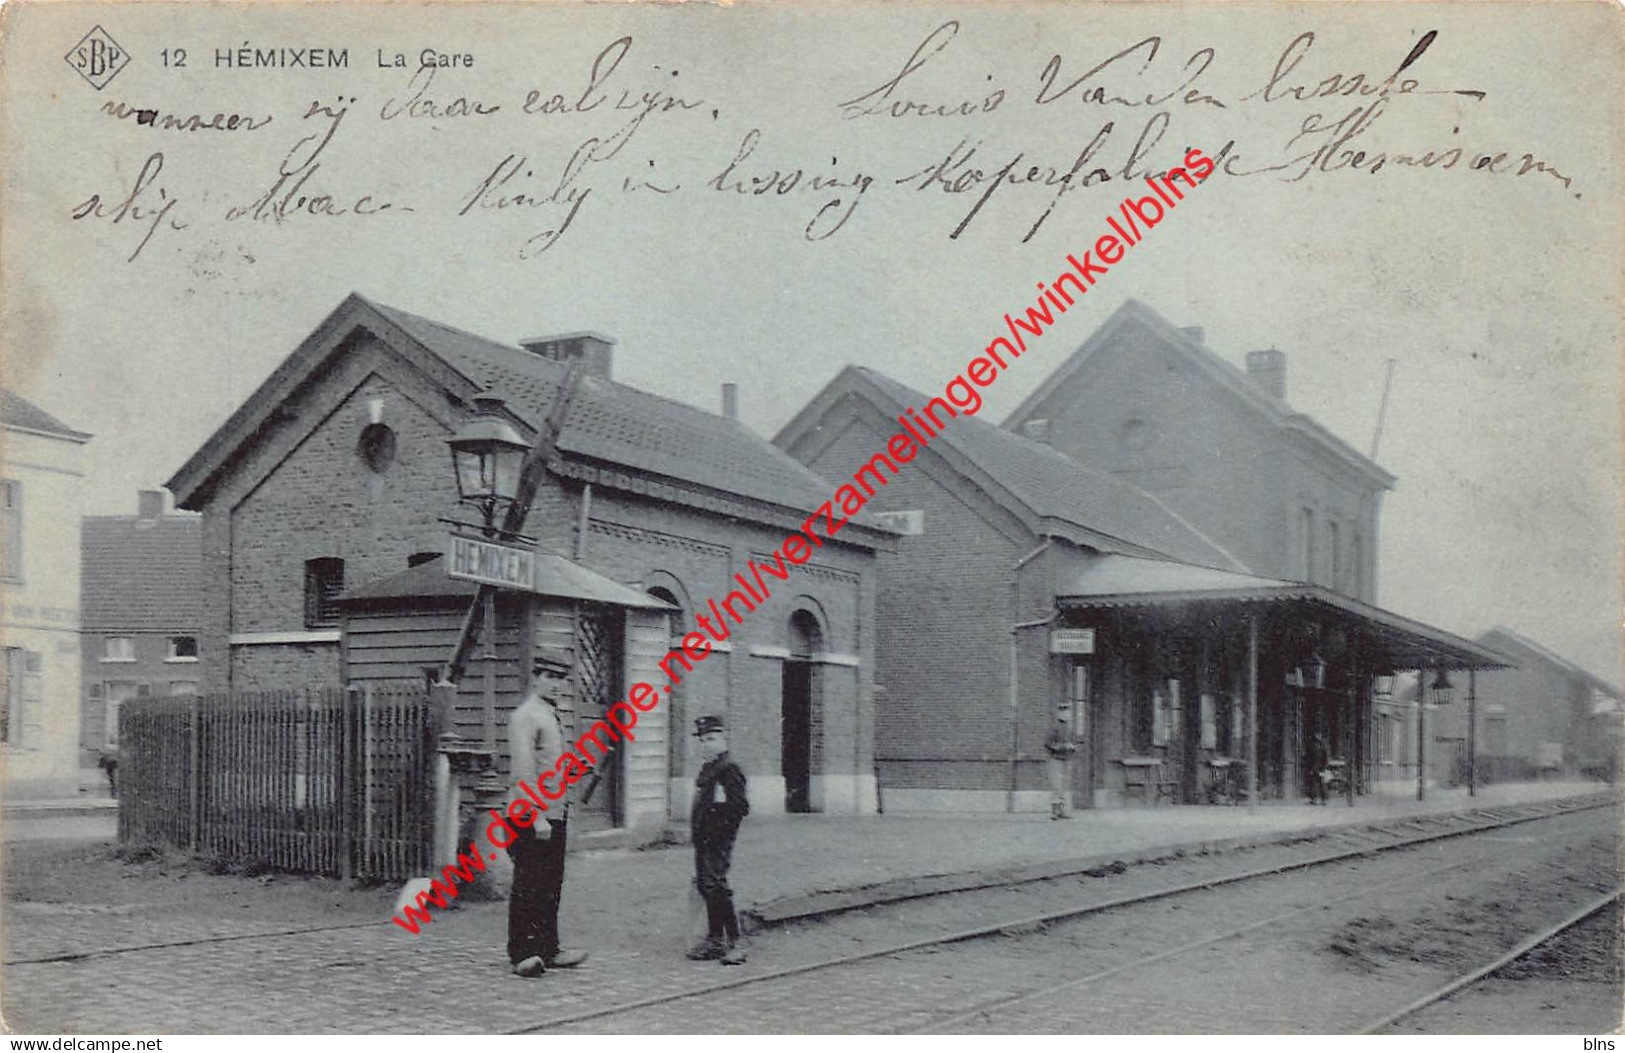 SBP 12 HÉMIXEM La Gare
wanneer zij daar zal zijn. Louis Vanden bossche
schip in lossing Koperfabriek Hemixem.
HEMIXEM
www.delcampe.net/nl/verzamelingen/winkel/blns
www.delcampe.net
blns